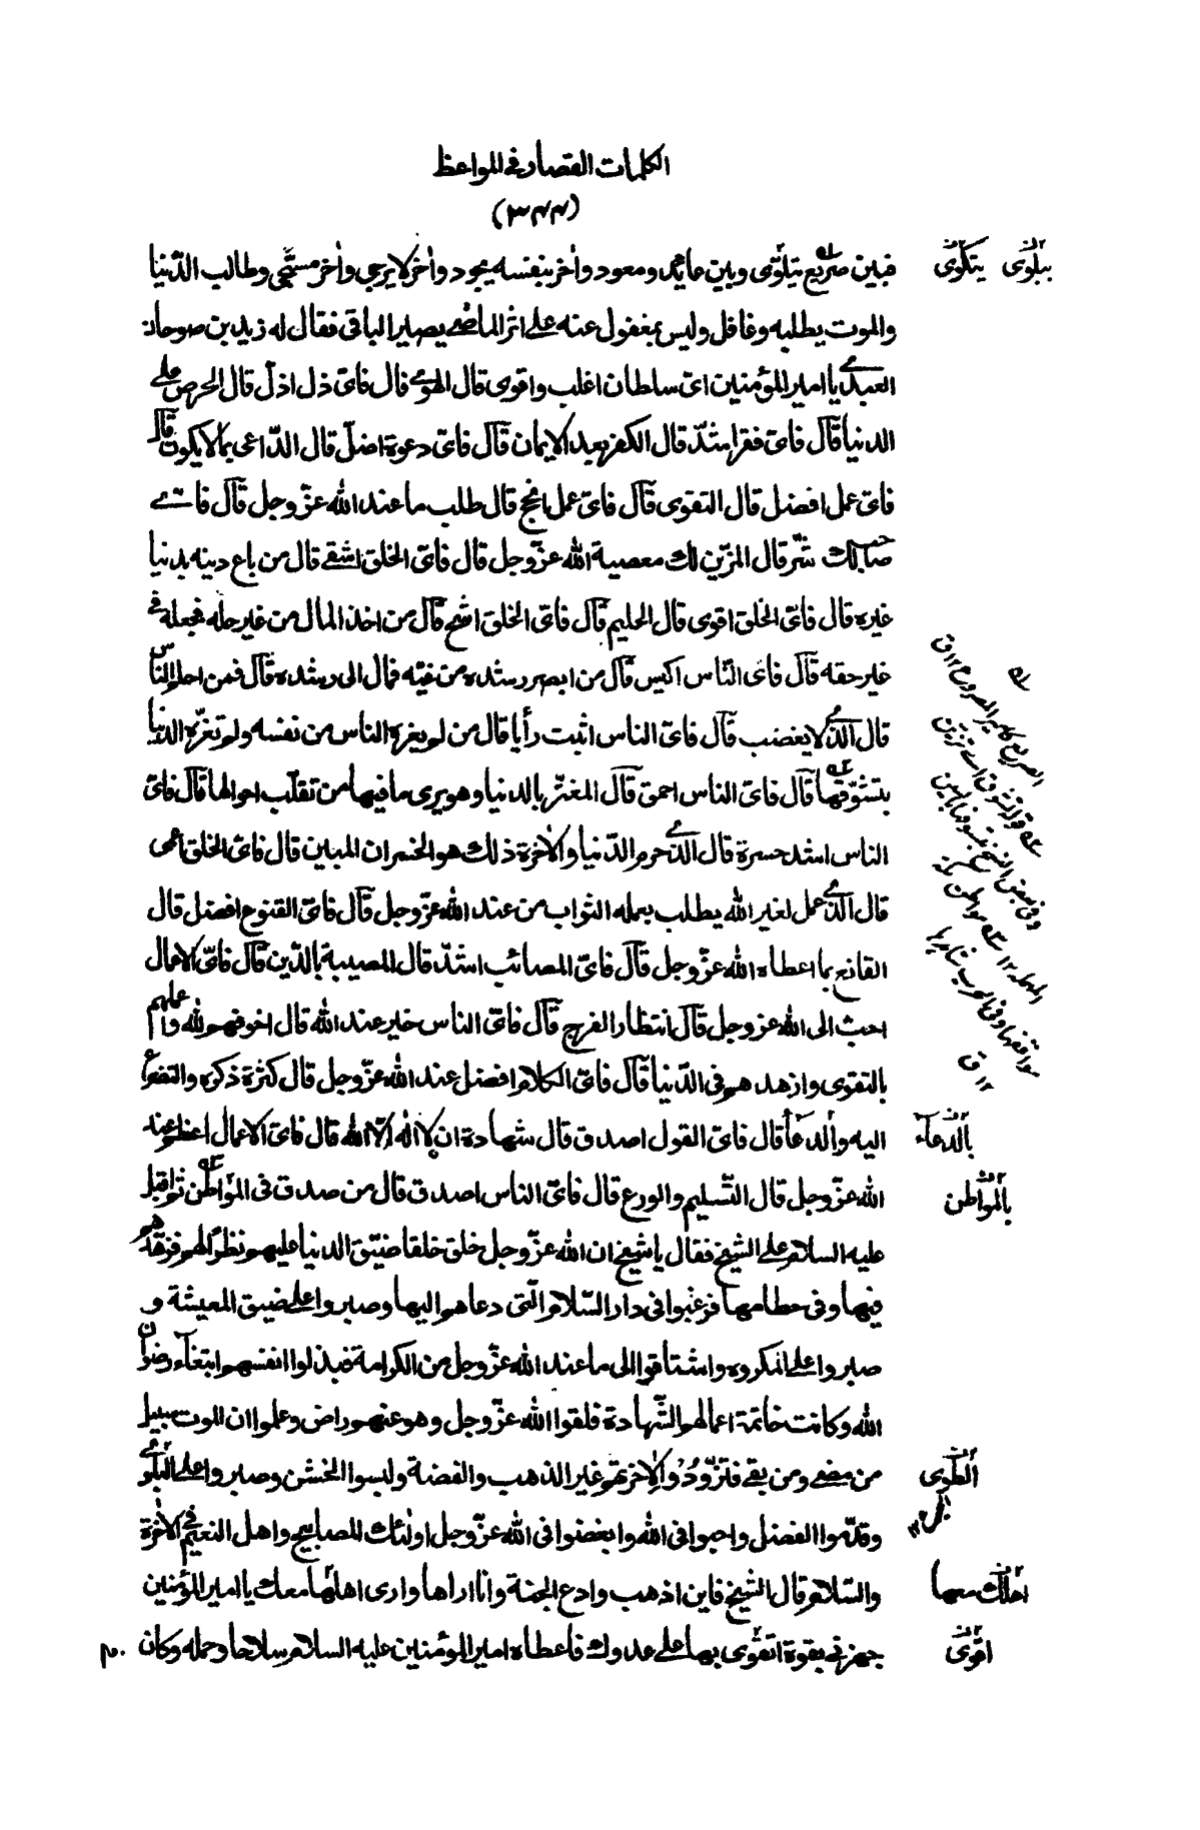 الكلمات القصار في المواعظ
(٣٤٤)
فبين صريع يتلوّى وبين عايد ومعود واٰخر بنفسه يجود واٰخر لا يرجى واٰخر مسجّى وطالب الدّنيا
يتلوّى
والموت يطلبه وغافل وليس بمغفول عنه على اثر الماضي يصير الباقي فقال له زيد بن صوحان
العبدي يا امير المؤمنين ايّ سلطان اغلب واقوى قال الهوى قال فايّ ذل اذلّ قال الحرص على
الدنيا قال فايّ فقر اشدّ قال الكفر بعد الايمان قال فايّ دعوة اضلّ قال الدّاعي بما لا يكون قال
فايّ عمل افضل قال التقوى قال فايّ عمل انجح قال طلب ما عند الله عزّ وجل قال فايّ
صاحب لك شرّ قال المزيّن لك معصية الله عزّ وجل قال فايّ الخلق اشقى قال من باع دينه بدنيا
غيره قال فايّ الخلق اقوى قال الحليم قال فايّ الخلق اشح قال من اخذ المال من غير حله فجعله في
غير حقه قال فايّ النّاس اكيس قال من ابصر رشده من غيّه فمال الى رشده قال فمن احلم النّاس
قال الّذي لا يغضب قال فايّ الناس اثبت رأيا قال من لم يغره الناس من نفسه ولم تغرّه الدنيا
بتشوّفها قال فايّ الناس احمق قال المغترّ بالدنيا وهو يرى ما فيها من تقلّب احوالها قال فايّ
الناس اشد حسرة قال الّذي حرم الدّنيا والاٰخرة ذلك هو الخسران المبين قال فايّ الخلق اعمى
قال الّذي عمل لغير الله يطلب بعمله الثواب من عند الله عزّ وجل قال فايّ القنوع افضل قال
القانع بما اعطاه الله عزّ وجل قال فايّ المصائب اشدّ قال المصيبة بالدّين قال فايّ الاعمال
احبّ الى الله عز وجل قال انتظار الفرج قال فايّ الناس خير عند الله قال اخوفهم لله واعلمهم
بالتقوى وازهدهم في الدّنيا قال فايّ الكلام افضل عند الله عزّ وجل قال كثرة ذكره والتضرع
اليه والدعآء قال فايّ القول اصدق قال شهادة ان لا اله الّا الله قال فايّ الاعمال اعظم عند
بالدعآء
الله عزّ وجل قال التّسليم والورع قال فايّ الناس اصدق قال من صدق في المواطن ثم اقبل
بالمواطن
عليه السلام على الشيخ فقال يا شيخ ان الله عزّ وجل خلق خلقا ضيّق الدنيا عليهم نظرًا لهم فزهّدهم
فيها وفي حطامها فرغبوا في دار السّلام الّتي دعاهم اليها وصبروا على ضيق المعيشة و
صبروا على المكروه واشتاقوا الى ما عند الله عزّ وجل من الكرامة فبذلوا انفسهم ابتغآء رضوان
الله وكانت خاتمة اعمالهم الشّهادة فلقوا الله عزّ وجل وهو عنهم راض وعلموا ان الموت سبيل
من مضى ومن بقي فتزوّدوا لاٰخرتهم غير الذهب والفضة ولبسوا الخشن وصبروا على البلوى
الطوى
وقدّموا الفضل واحبوا في الله وابغضوا في الله عزّ وجل اولئك المصابيح واهل النعيم في الاٰخرة
والسّلام قال الشيخ فاين اذهب وادع الجنة وانا اراها وارى اهلها معك يا امير المؤمنين
اهلك معها
جهزني بقوة اتقوّى بها على عدوك فاعطاه امير المؤمنين عليه السلام سلاحا وحمله وكان
اقوى